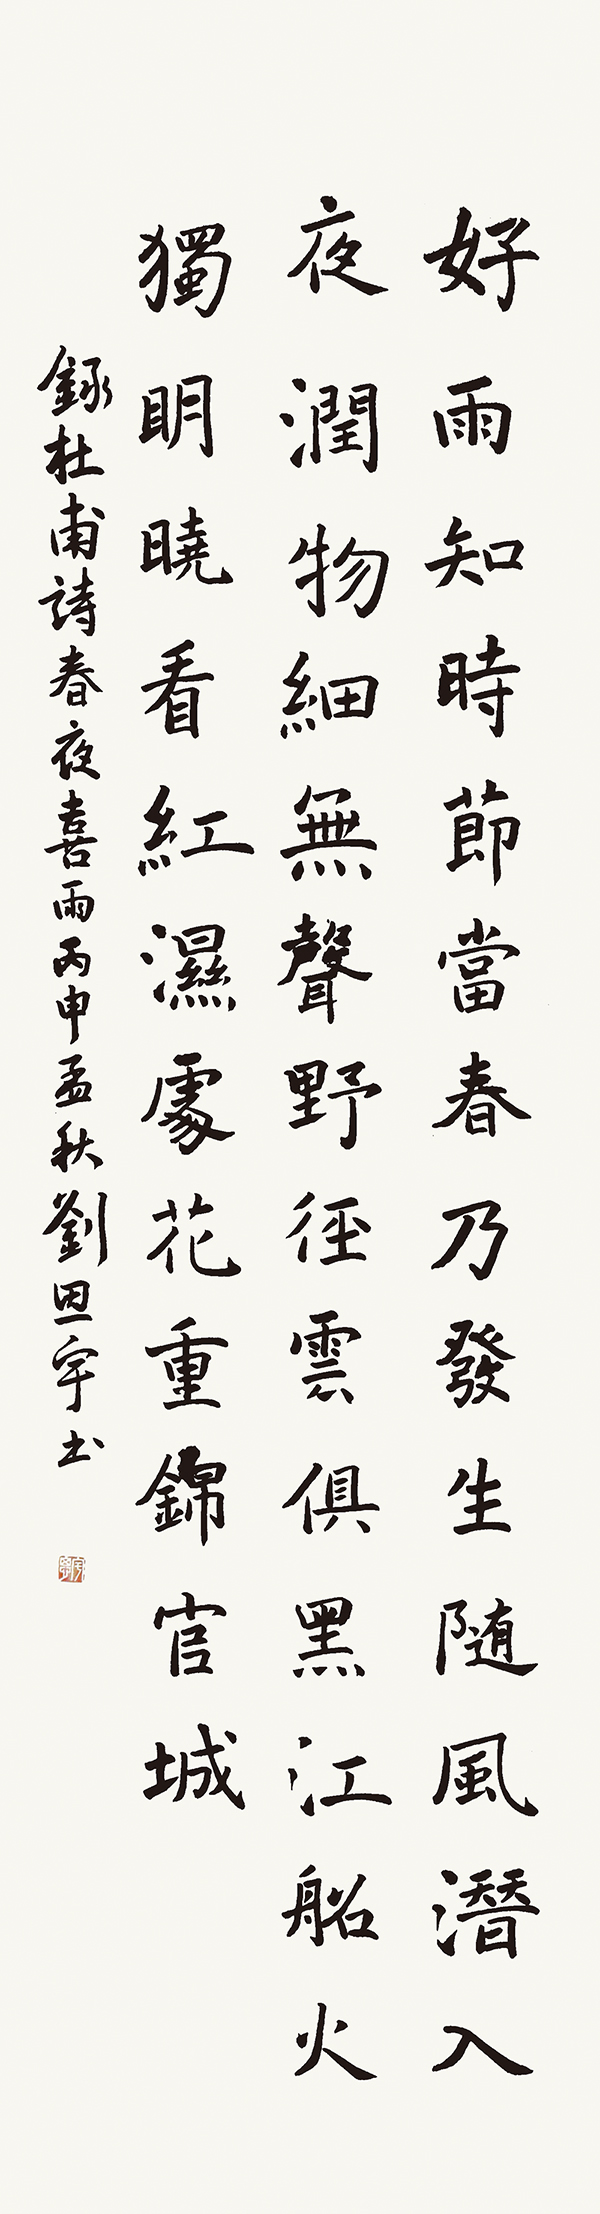 好雨知時節當春乃發生随風潛入
夜潤物細無聲野徑雲俱黑江船火
獨明曉看紅濕處花重錦官城
錄杜甫詩春夜喜雨丙申孟秋劉思宇书